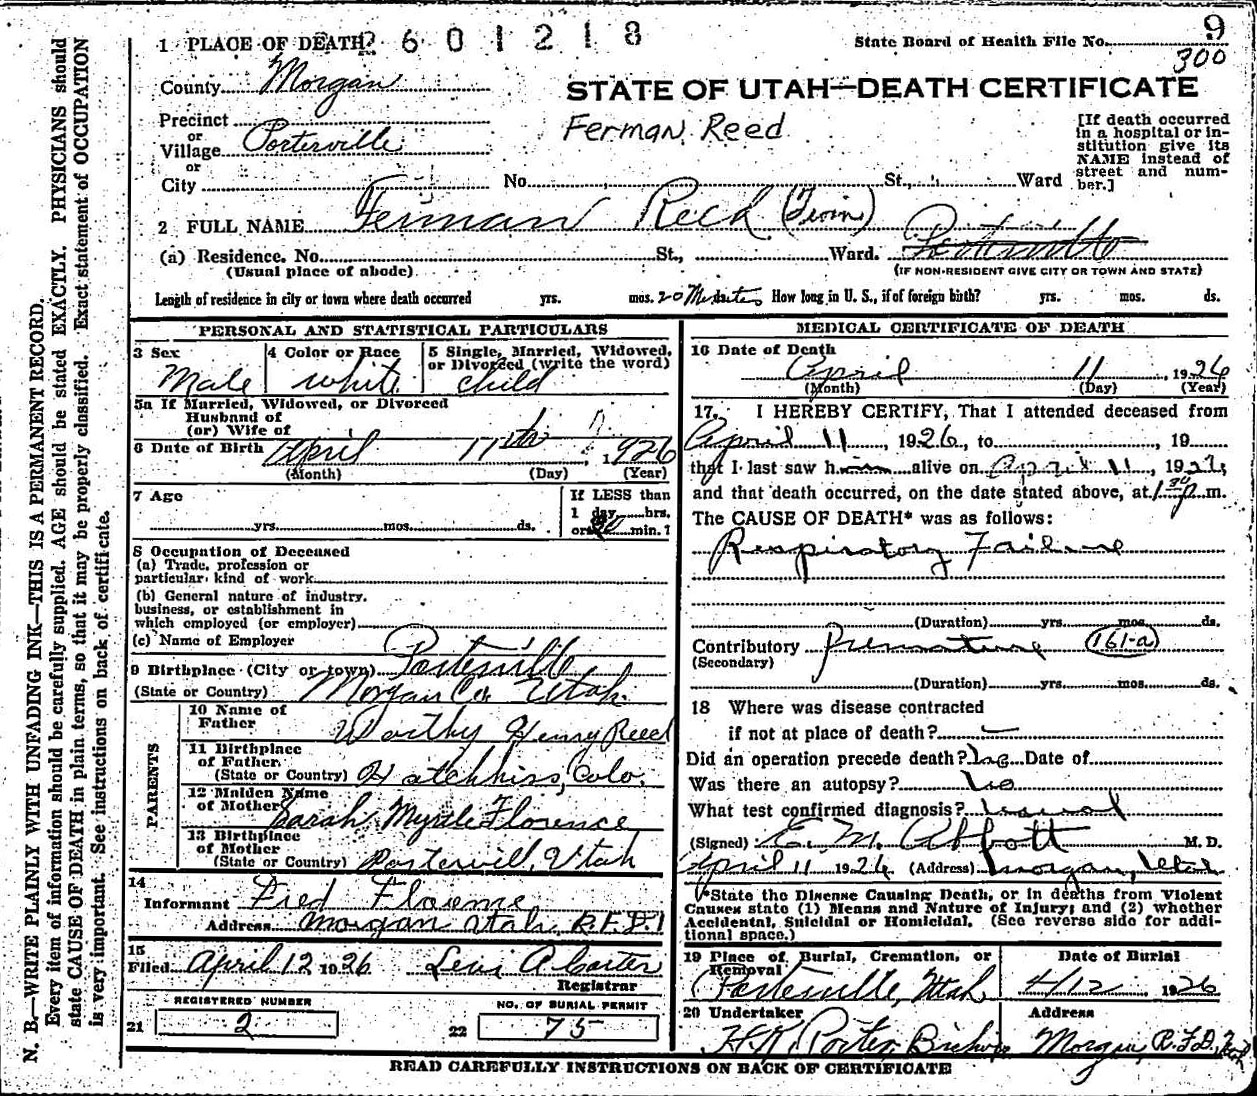 1 PLACE OF DEATH 2 6 0 1 2 1 8
State Board of Health File No. 9
300
County Morgan
STATE OF UTAH—DEATH CERTIFICATE
Ferman Reed
Precinct
or
Village Porterville
or
City
No. St., Ward
[If death occurred
in a hospital or in-
stitution give its
NAME instead of
street and num-
ber.]
2 FULL NAME Ferman Reed (Twin)
(a) Residence. No. St., Ward. Porterville
(Usual place of abode)
(IF NON-RESIDENT GIVE CITY OR TOWN AND STATE)
Length of residence in city or town where death occurred yrs. mos. 20 Minutes How long in U. S., if of foreign birth? yrs. mos. ds.
PERSONAL AND STATISTICAL PARTICULARS
3 Sex
Male
4 Color or Race
white
5 Single, Married, Widowed,
or Divorced (write the word)
child
5a If Married, Widowed, or Divorced
Husband of
(or) Wife of
6 Date of Birth April 11th 1926
(Month) (Day) (Year)
7 Age
yrs. mos. ds.
If LESS than
1 day hrs.
or 20 min.?
8 Occupation of Deceased
(a) Trade, profession or
particular kind of work
(b) General nature of industry,
business, or establishment in
which employed (or employer)
(c) Name of Employer
9 Birthplace (City or town) Porterville
(State or Country) Morgan Co. Utah.
PARENTS
10 Name of
Father Worthy Henry Reed
11 Birthplace
of Father
(State or Country) Hotchkiss, Colo.
12 Maiden Name
of Mother Sarah Myrtle Florence
13 Birthplace
of Mother
(State or Country) Portervill, Utah
14
Informant Fred Florence
Address Morgan Utah. R.F.D.1
15
Filed April 12 1926 Levi A Carter
Registrar
REGISTERED NUMBER
21 2
NO. OF BURIAL PERMIT
22 75
MEDICAL CERTIFICATE OF DEATH
16 Date of Death
April 11 1926
(Month) (Day) (Year)
17. I HEREBY CERTIFY, That I attended deceased from
April 11, 1926, to , 19
that I last saw him alive on April 11, 1926,
and that death occurred, on the date stated above, at 1 30 p m.
The CAUSE OF DEATH* was as follows:
Respiratory Failure
(Duration) yrs. mos. ds.
Contributory premature 161-a
(Secondary)
(Duration) yrs. mos. ds.
18 Where was disease contracted
if not at place of death?
Did an operation precede death? no Date of
Was there an autopsy? no
What test confirmed diagnosis?
(Signed) E. M. Abbott M. D.
April 11 1926 (Address) Morgan, Utah
*State the Disease Causing Death, or in deaths from Violent
Causes state (1) Means and Nature of Injury; and (2) whether
Accidental, Suicidal or Homicidal. (See reverse side for addi-
tional space.)
19 Place of Burial, Cremation, or
Removal
Porterville, Utah
Date of Burial
4/12 1926
20 Undertaker
H.K. Porter, Bishop
Address
Morgan, R.F.D.
READ CAREFULLY INSTRUCTIONS ON BACK OF CERTIFICATE
N. B.—WRITE PLAINLY WITH UNFADING INK—THIS IS A PERMANENT RECORD.
Every item of information should be carefully supplied. AGE should be stated EXACTLY. PHYSICIANS should
state CAUSE OF DEATH in plain terms, so that it may be properly classified. Exact statement of OCCUPATION
is very important. See instructions on back of certificate.